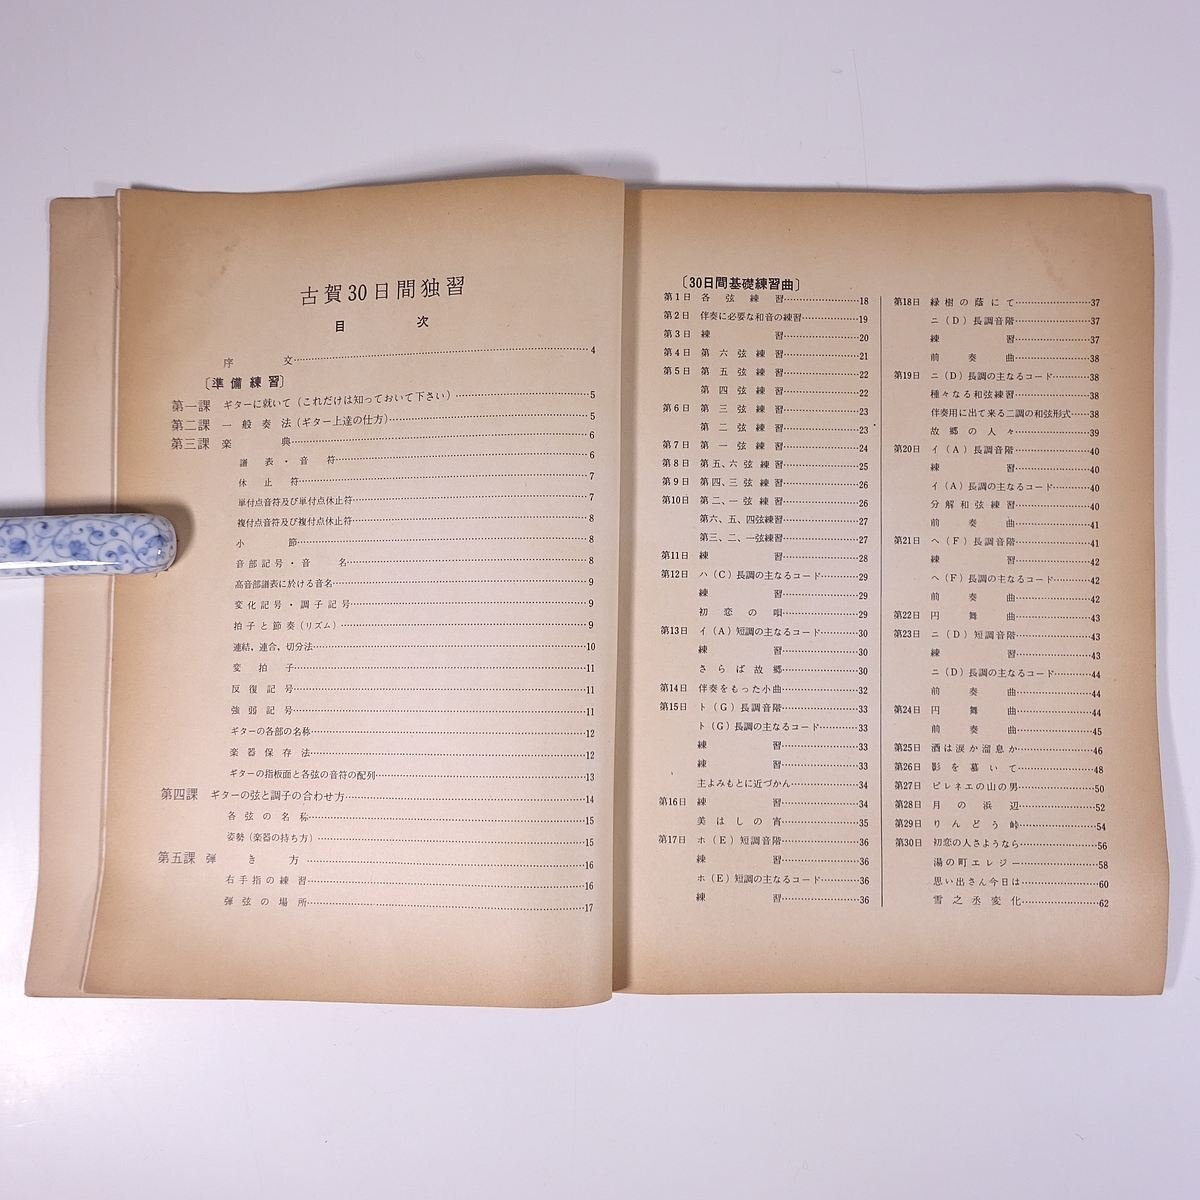 古賀30日間独習
目次
序文……4
〔準備練習〕
第一課 ギターに就いて(これだけは知っておいて下さい)……5
第二課 一般奏法(ギター上達の仕方)……5
第三課 楽典……6
譜表・音符……6
休止符……7
単付点音符及び単付点休止符……7
複付点音符及び複付点休止符……8
小節……8
音部記号・音名……8
高音部譜表に於ける音名……9
変化記号・調子記号……9
拍子と節奏(リズム)……9
連結,連合,切分法……10
変拍子……11
反復記号……11
強弱記号……11
ギターの各部の名称……12
楽器保存法……12
ギターの指板面と各弦の音符の配列……13
第四課 ギターの弦と調子の合わせ方……14
各弦の名称……15
姿勢(楽器の持ち方)……15
第五課 弾き方……16
右手指の練習……16
弾弦の場所……17
〔30日間基礎練習曲〕
第1日 各弦練習……18
第2日 伴奏に必要な和音の練習……19
第3日 練習……20
第4日 第六弦練習……21
第5日 第五弦練習……22
第四弦練習……22
第6日 第三弦練習……23
第二弦練習……23
第7日 第一弦練習……24
第8日 第五、六弦練習……25
第9日 第四、三弦練習……26
第10日 第二、一弦練習……26
第六、五、四弦練習……27
第三、二、一弦練習……27
第11日 練習……28
第12日 ハ(C)長調の主なるコード……29
練習……29
初恋の唄……29
第13日 イ(A)短調の主なるコード……30
練習……30
さらば故郷……30
第14日 伴奏をもった小曲……32
第15日 ト(G)長調音階……33
ト(G)長調の主なるコード……33
練習……33
練習……33
主よみもとに近づかん……34
第16日 練習……34
美はしの宵……35
第17日 ホ(E)短調音階……36
練習……36
ホ(E)短調の主なるコード……36
練習……36
第18日 緑樹の蔭にて……37
ニ(D)長調音階……37
練習……37
前奏曲……38
第19日 ニ(D)長調の主なるコード……38
種々なる和弦練習……38
伴奏用に出て来る二調の和弦形式……38
故郷の人々……39
第20日 イ(A)長調音階……40
練習……40
イ(A)長調の主なるコード……40
分解和弦練習……40
前奏曲……41
第21日 ヘ(F)長調音階……41
練習……42
ヘ(F)長調の主なるコード……42
前奏曲……42
第22日 円舞曲……43
第23日 ニ(D)短調音階……43
練習……43
ニ(D)長調の主なるコード……44
前奏曲……44
第24日 円舞曲……44
前奏曲……45
第25日 酒は涙か溜息か……46
第26日 影を慕いて……48
第27日 ピレネエの山の男……50
第28日 月の浜辺……52
第29日 りんどう峠……54
第30日 初恋の人さようなら……56
湯の町エレジー……58
思い出さん今日は……60
雪之丞変化……62